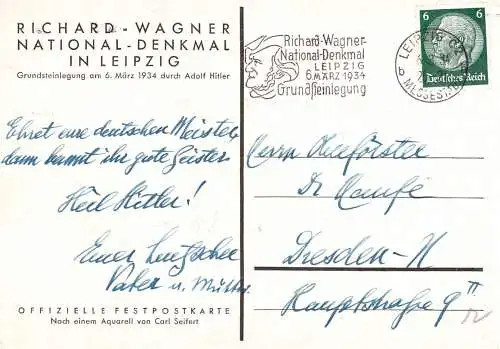 RICHARD-WAGNER
NATIONAL-DENKMAL
IN LEIPZIG
Grundsteinlegung am 6. März 1934 durch Adolf Hitler
Ehret eure deutschen Meister,
dann bannt ihr gute Geister
Heil Hitler!
Euer
Vater u. Mutter
OFFIZIELLE FESTPOSTKARTE
Nach einem Aquarell von Carl Seifert
Richard-Wagner-
National-Denkmal
LEIPZIG
6.MÄRZ 1934
Grundsteinlegung
LEIPZIG
MESSESTADT
6 6
Deutsches Reich
Herrn
Dr
Dresden-N
Hauptstraße 9 II